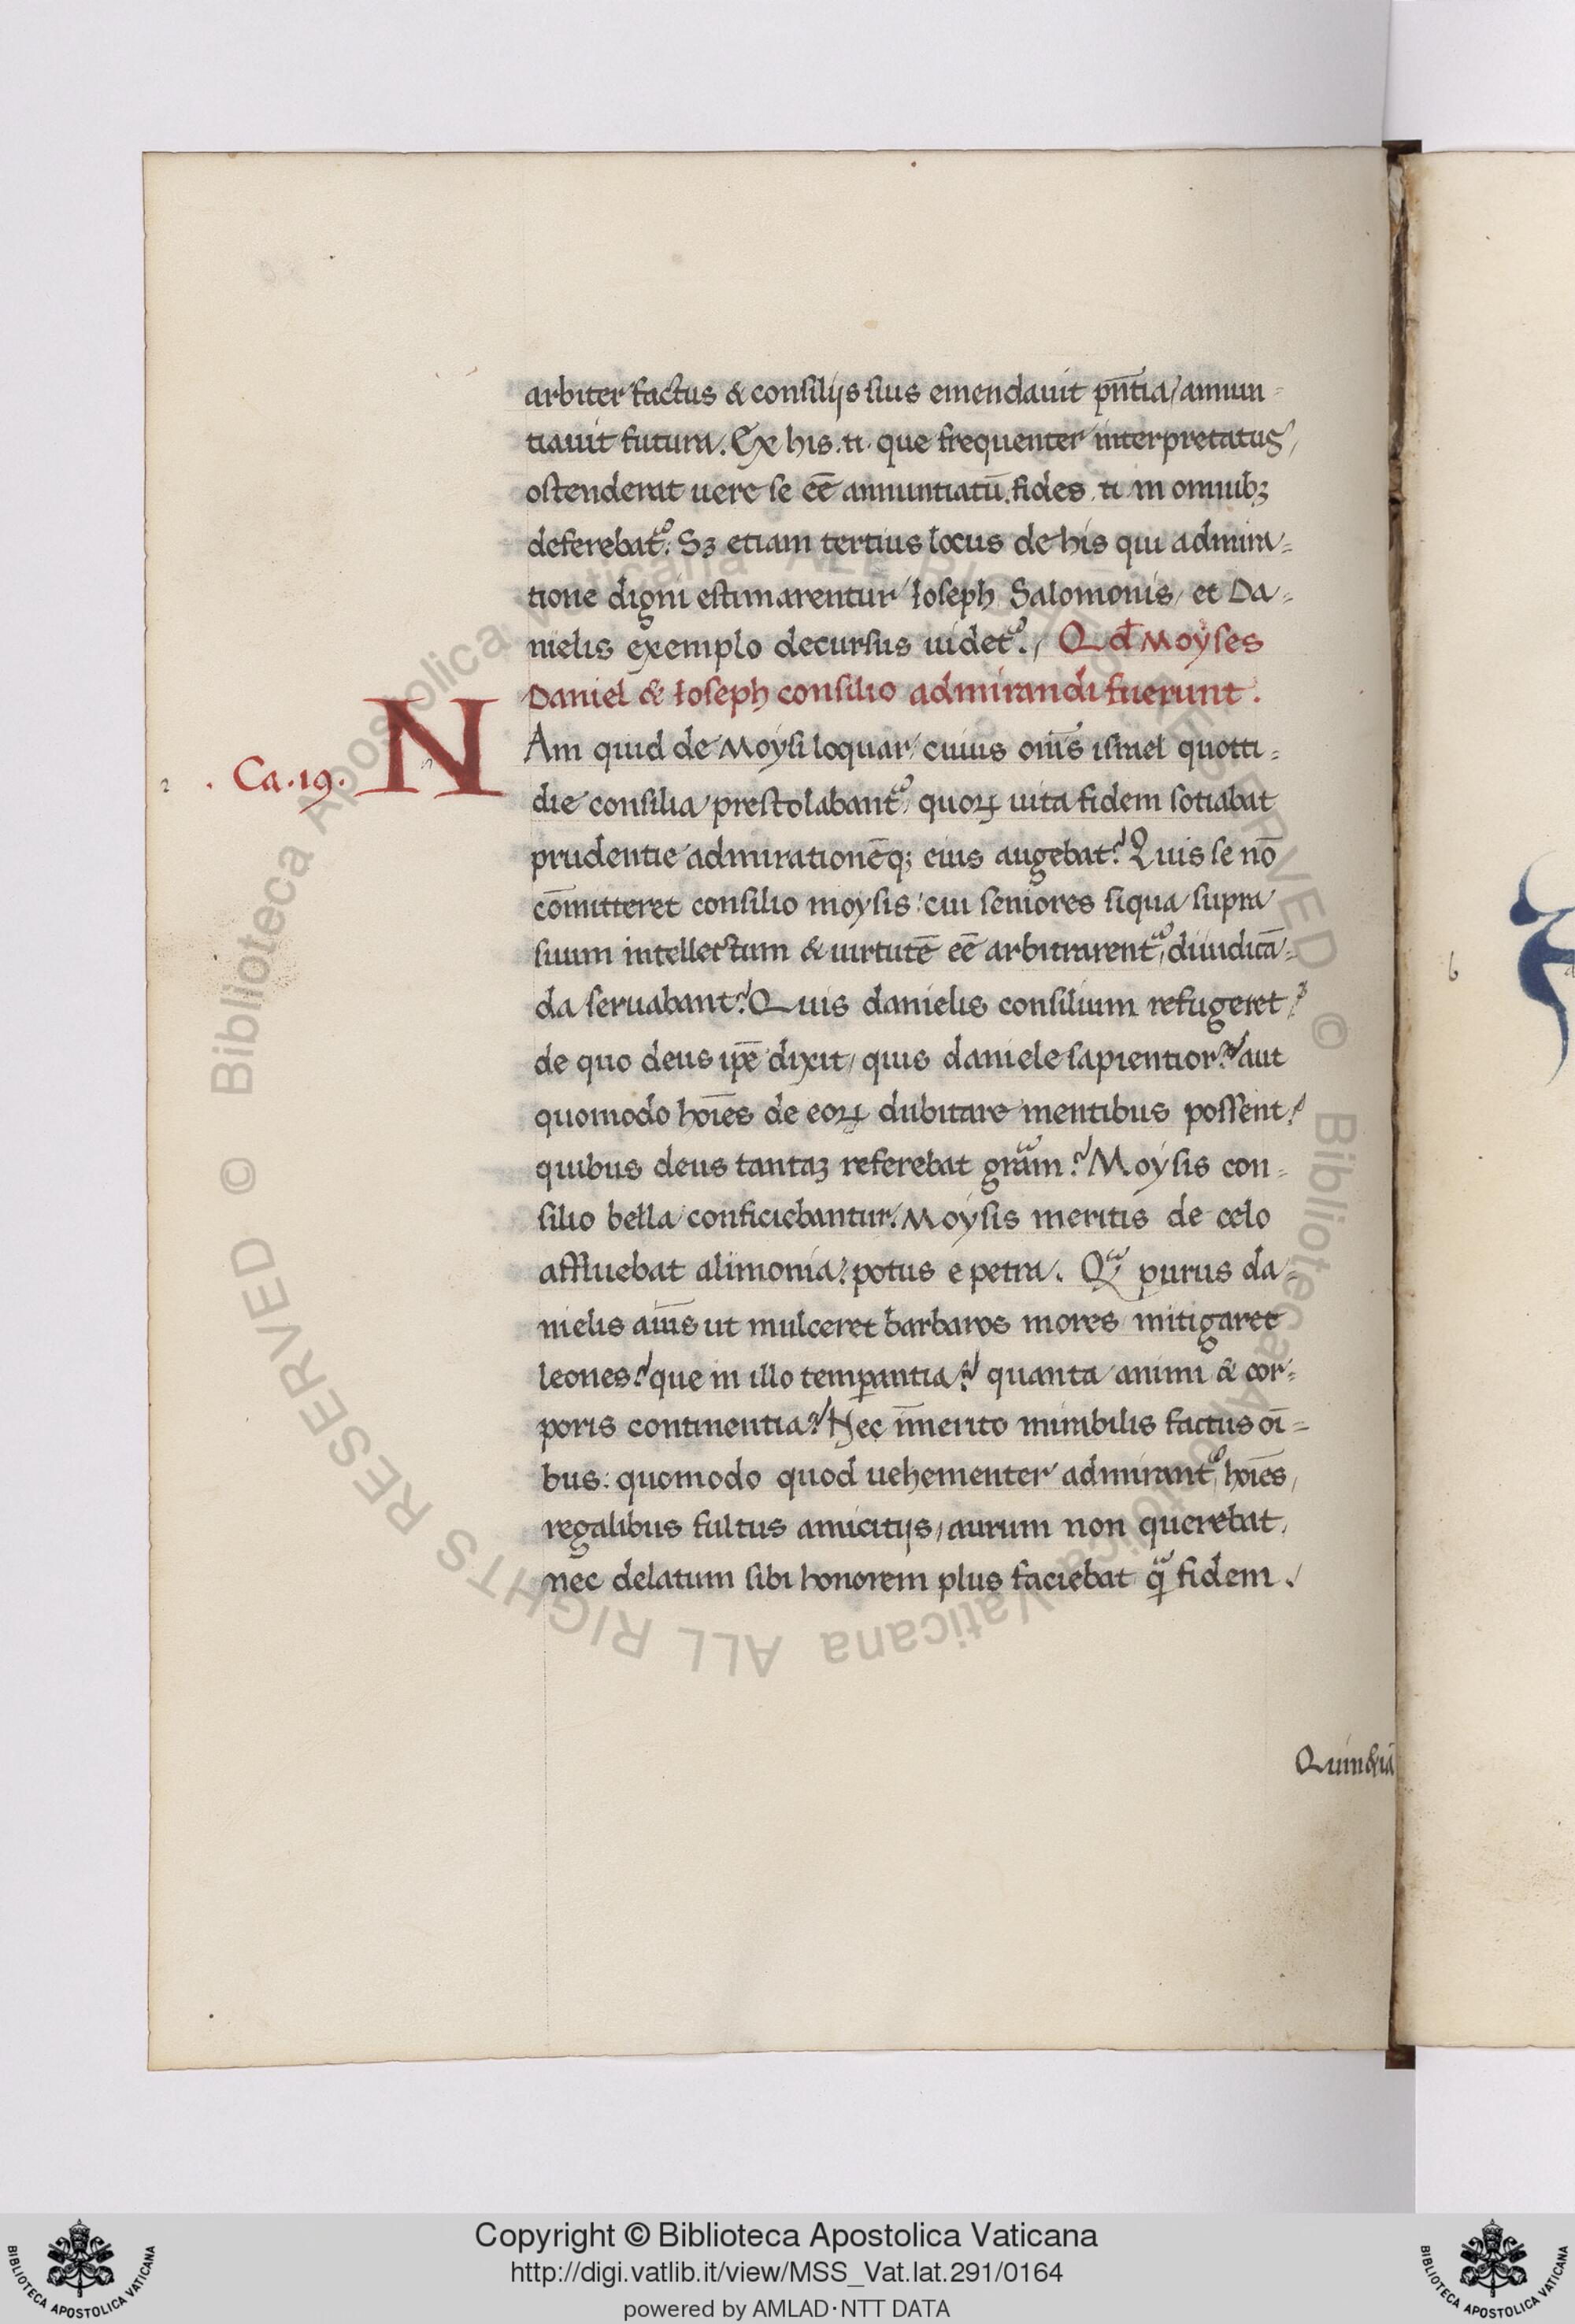 arbiter factus & consilijs suis emendauit pn̄tia / annun-
tiauit futura. Ex his .ti. que frequenter interpretatus,
ostenderat uere se eē annuntiatū. fides .ti. in omnibꝫ
deferebat᷑. Sꝫ etiam tertius locus de his qui admira-
tione digni estimarentur Ioseph Salomonis / et Da-
nielis exemplo decursus uidet᷑. / Qd̄ Moyses
Daniel & Ioseph consilio admirandi fuerunt.
. Ca. 19. N
Am quid de Moysi loquar / cuius om̄s israel quotti-
die consilia prestolabant᷑, quoꝝ uita fidem sotiabat
prudentie admirationēqꝫ eius augebat? Quis se nō
cōmitteret consilio moysis: cui seniores siqua supra
suum intellectum & uirtutē eē arbitrarent᷑, diiudicā-
da seruabant? Quis danielis consilium refugeret?
de quo deus ip̄e dixit / quis daniele sapientior? aut
quomodo hoīes de eoꝝ dubitare mentibus possent?
quibus deus tantaꝫ referebat gram? Moysis con-
silio bella conficiebantur. Moysis meritis de celo
affluebat alimonia: potus e petra. Qᷓ purus da-
nielis aīus ut mulceret barbaros mores / mitigaret
leones? que in illo temꝑantia? quanta animi & cor-
poris continentia? Nec īmerito mirabilis factus oī-
bus: quomodo quod uehementer admirant᷑ hoīes,
regalibus fultus amicitijs / aurum non querebat,
nec delatum sibi honorem plus faciebat qᷓ fidem.
Quin &iā
b
Copyright © Biblioteca Apostolica Vaticana
http://digi.vatlib.it/view/MSS_Vat.lat.291/0164
powered by AMLAD·NTT DATA
BIBLIOTECA APOSTOLICA VATICANA
BIBLIOTECA APOSTOLICA VATICANA
© Biblioteca Apostolica Vaticana ALL RIGHTS RESERVED © Biblioteca Apostolica Vaticana ALL RIGHTS RESERVED